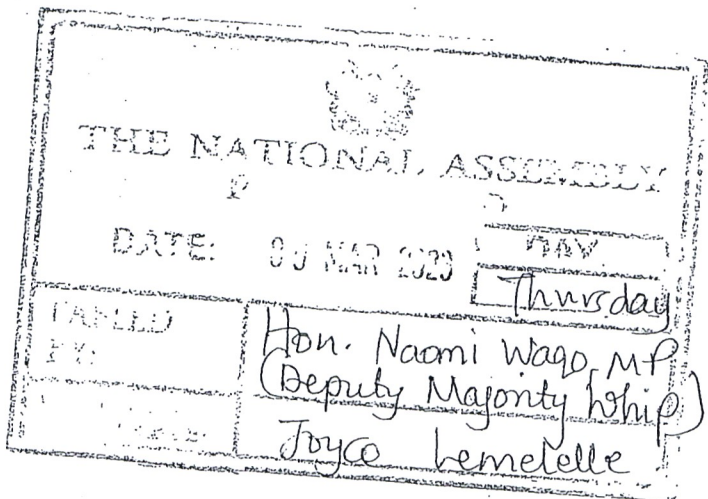 THE NATIONAL ASSEMBLY
P D
DATE: MAR 2023 DAY
Thursday
TABLED Hon. Naomi Waqo, MP
BY: (Deputy Majority Whip)
Joyce Lemelelle